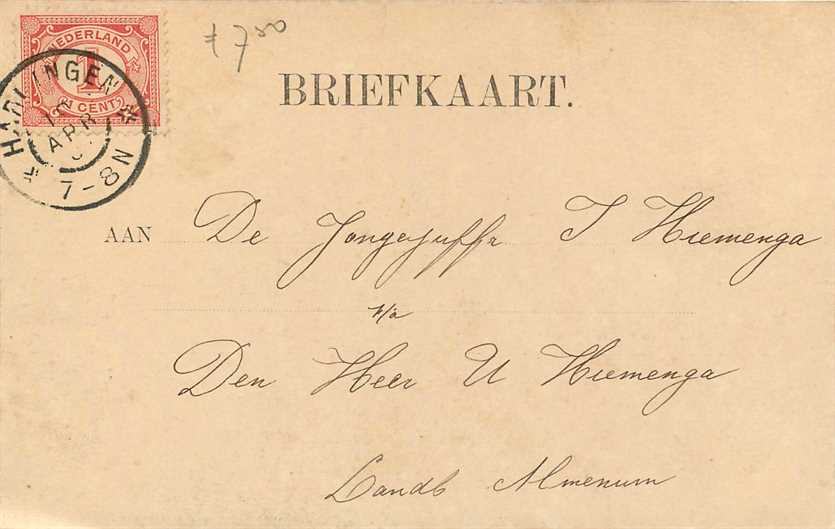 NEDERLAND
1
CENT
HARLINGEN
APR
7-8N
f 7 50
BRIEFKAART.
AAN De Jongejuffr I Hiemenga
p/a
Den Heer U Hiemenga
Landb Almenum